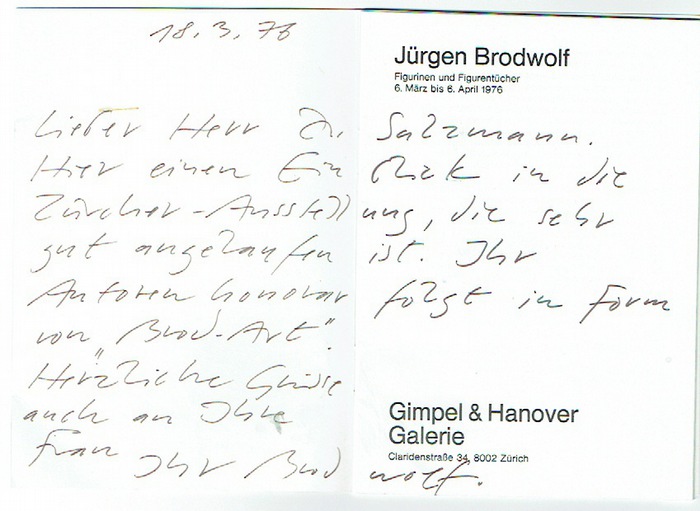 18.3.76
Jürgen Brodwolf
Figurinen und Figurentücher
6. März bis 6. April 1976
Lieber Herr Dr. Salzmann.
Hier einen Einblick in die
Zürcher-Ausstellung, die sehr
gut angelaufen ist. Ihr
Autorenhonorar folgt in Form
von „Brod-Art".
Herzliche Grüsse
auch an Ihre
Frau Ihr Brodwolf.
Gimpel & Hanover
Galerie
Claridenstraße 34, 8002 Zürich